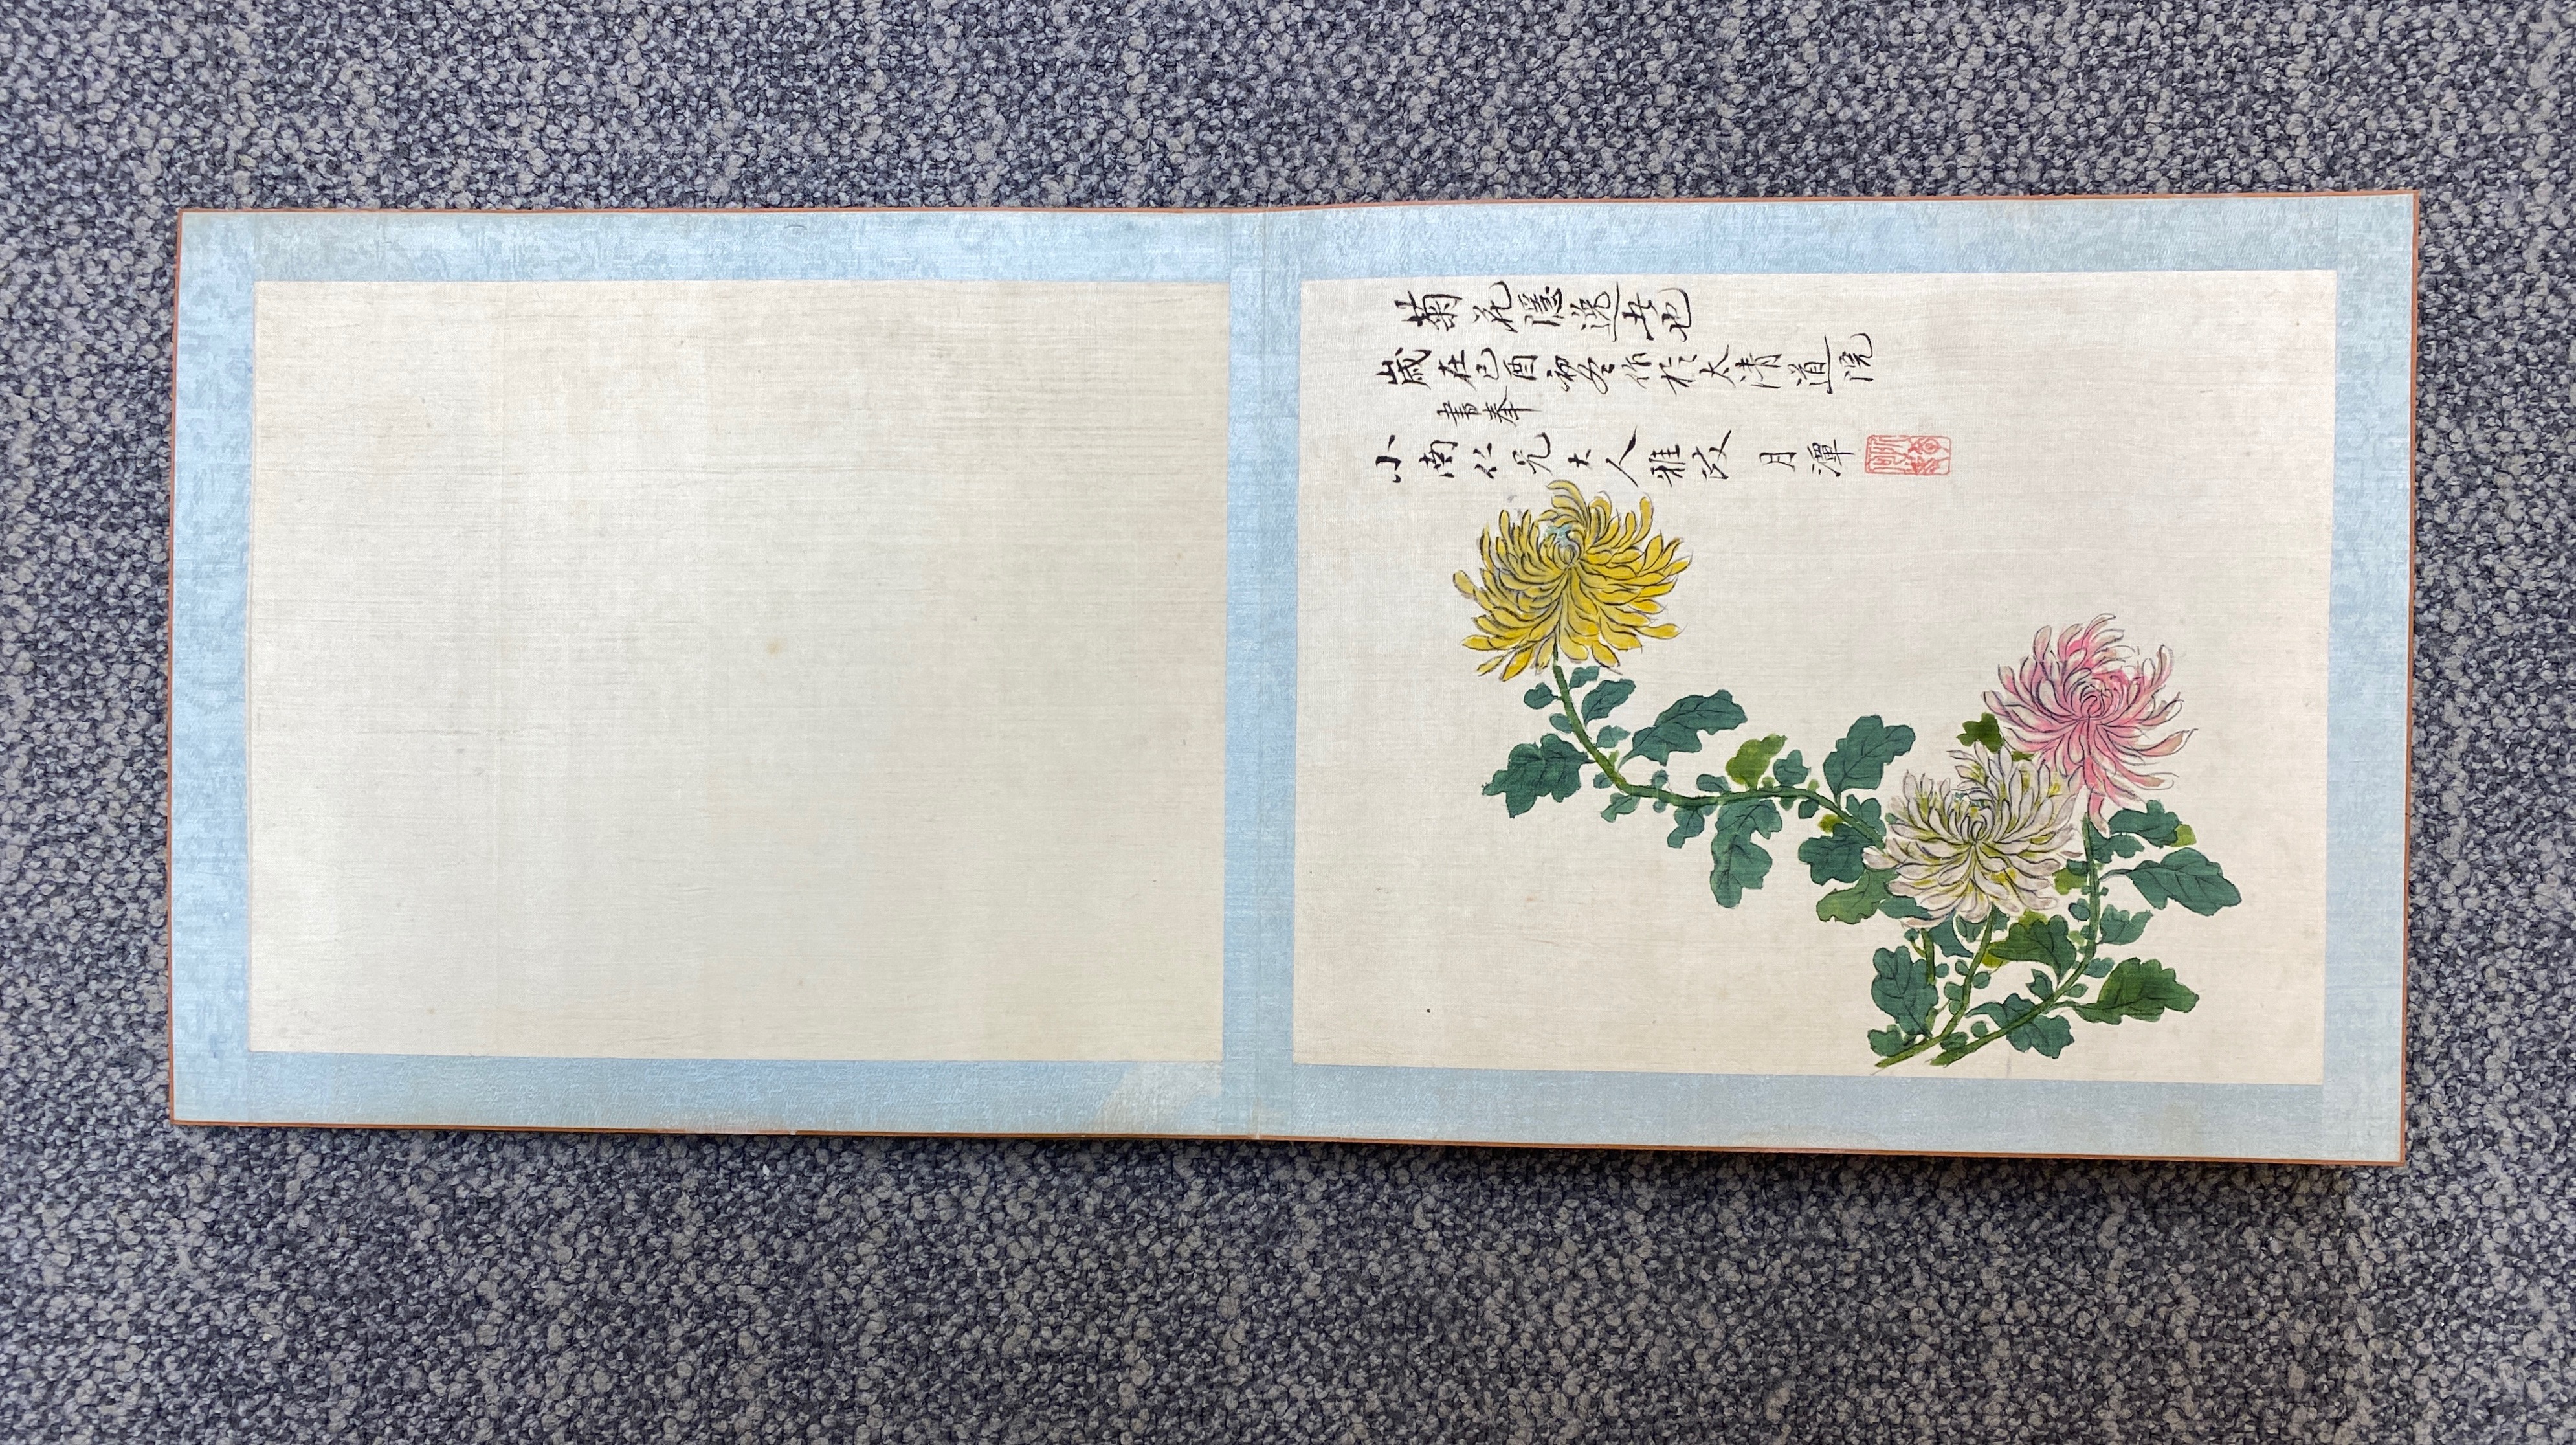 菊花隱逸者也
歲在己酉初冬作於太清道院
書奉
小南仁兄大人雅政 月潭